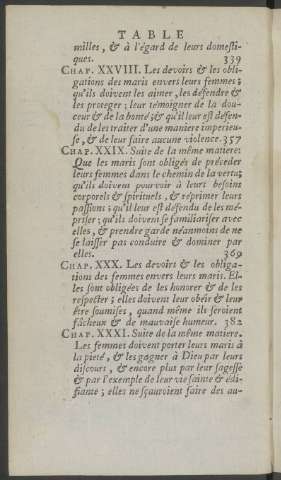 TABLE
milles, & à l'égard de leurs domesti-
ques. 339
CHAP. XXVIII. Les devoirs & les obli-
gations des maris envers leurs femmes;
qu'ils doivent les aimer, les défendre &
les proteger; leur témoigner de la dou-
ceur & de la bonté; & qu'il leur est défen-
du de les traiter d'une maniere imperieu-
se, & de leur faire aucune violence. 357
CHAP. XXIX. Suite de la même matiere:
Que les maris sont obligés de préceder
leurs femmes dans le chemin de la vertu;
qu'ils doivent pourvoir à leurs besoins
corporels & spirituels, & réprimer leurs
passions; qu'il leur est défendu de les mé-
priser; qu'ils doivent se familiariser avec
elles, & prendre garde néanmoins de ne
se laisser pas conduire & dominer par
elles. 369
CHAP. XXX. Les devoirs & les obliga-
tions des femmes envers leurs maris. El-
les sont obligées de les honorer & de les
respecter; elles doivent leur obéir & leur
être soumises, quand même ils seroient
fâcheux & de mauvaise humeur. 382
CHAP. XXXI. Suite de la même matiere.
Les femmes doivent porter leurs maris à
la pieté, & les gagner à Dieu par leurs
discours, & encore plus par leur sagesse
& par l'exemple de leur vie sainte & édi-
fiante; elles ne sçauroient faire des au-